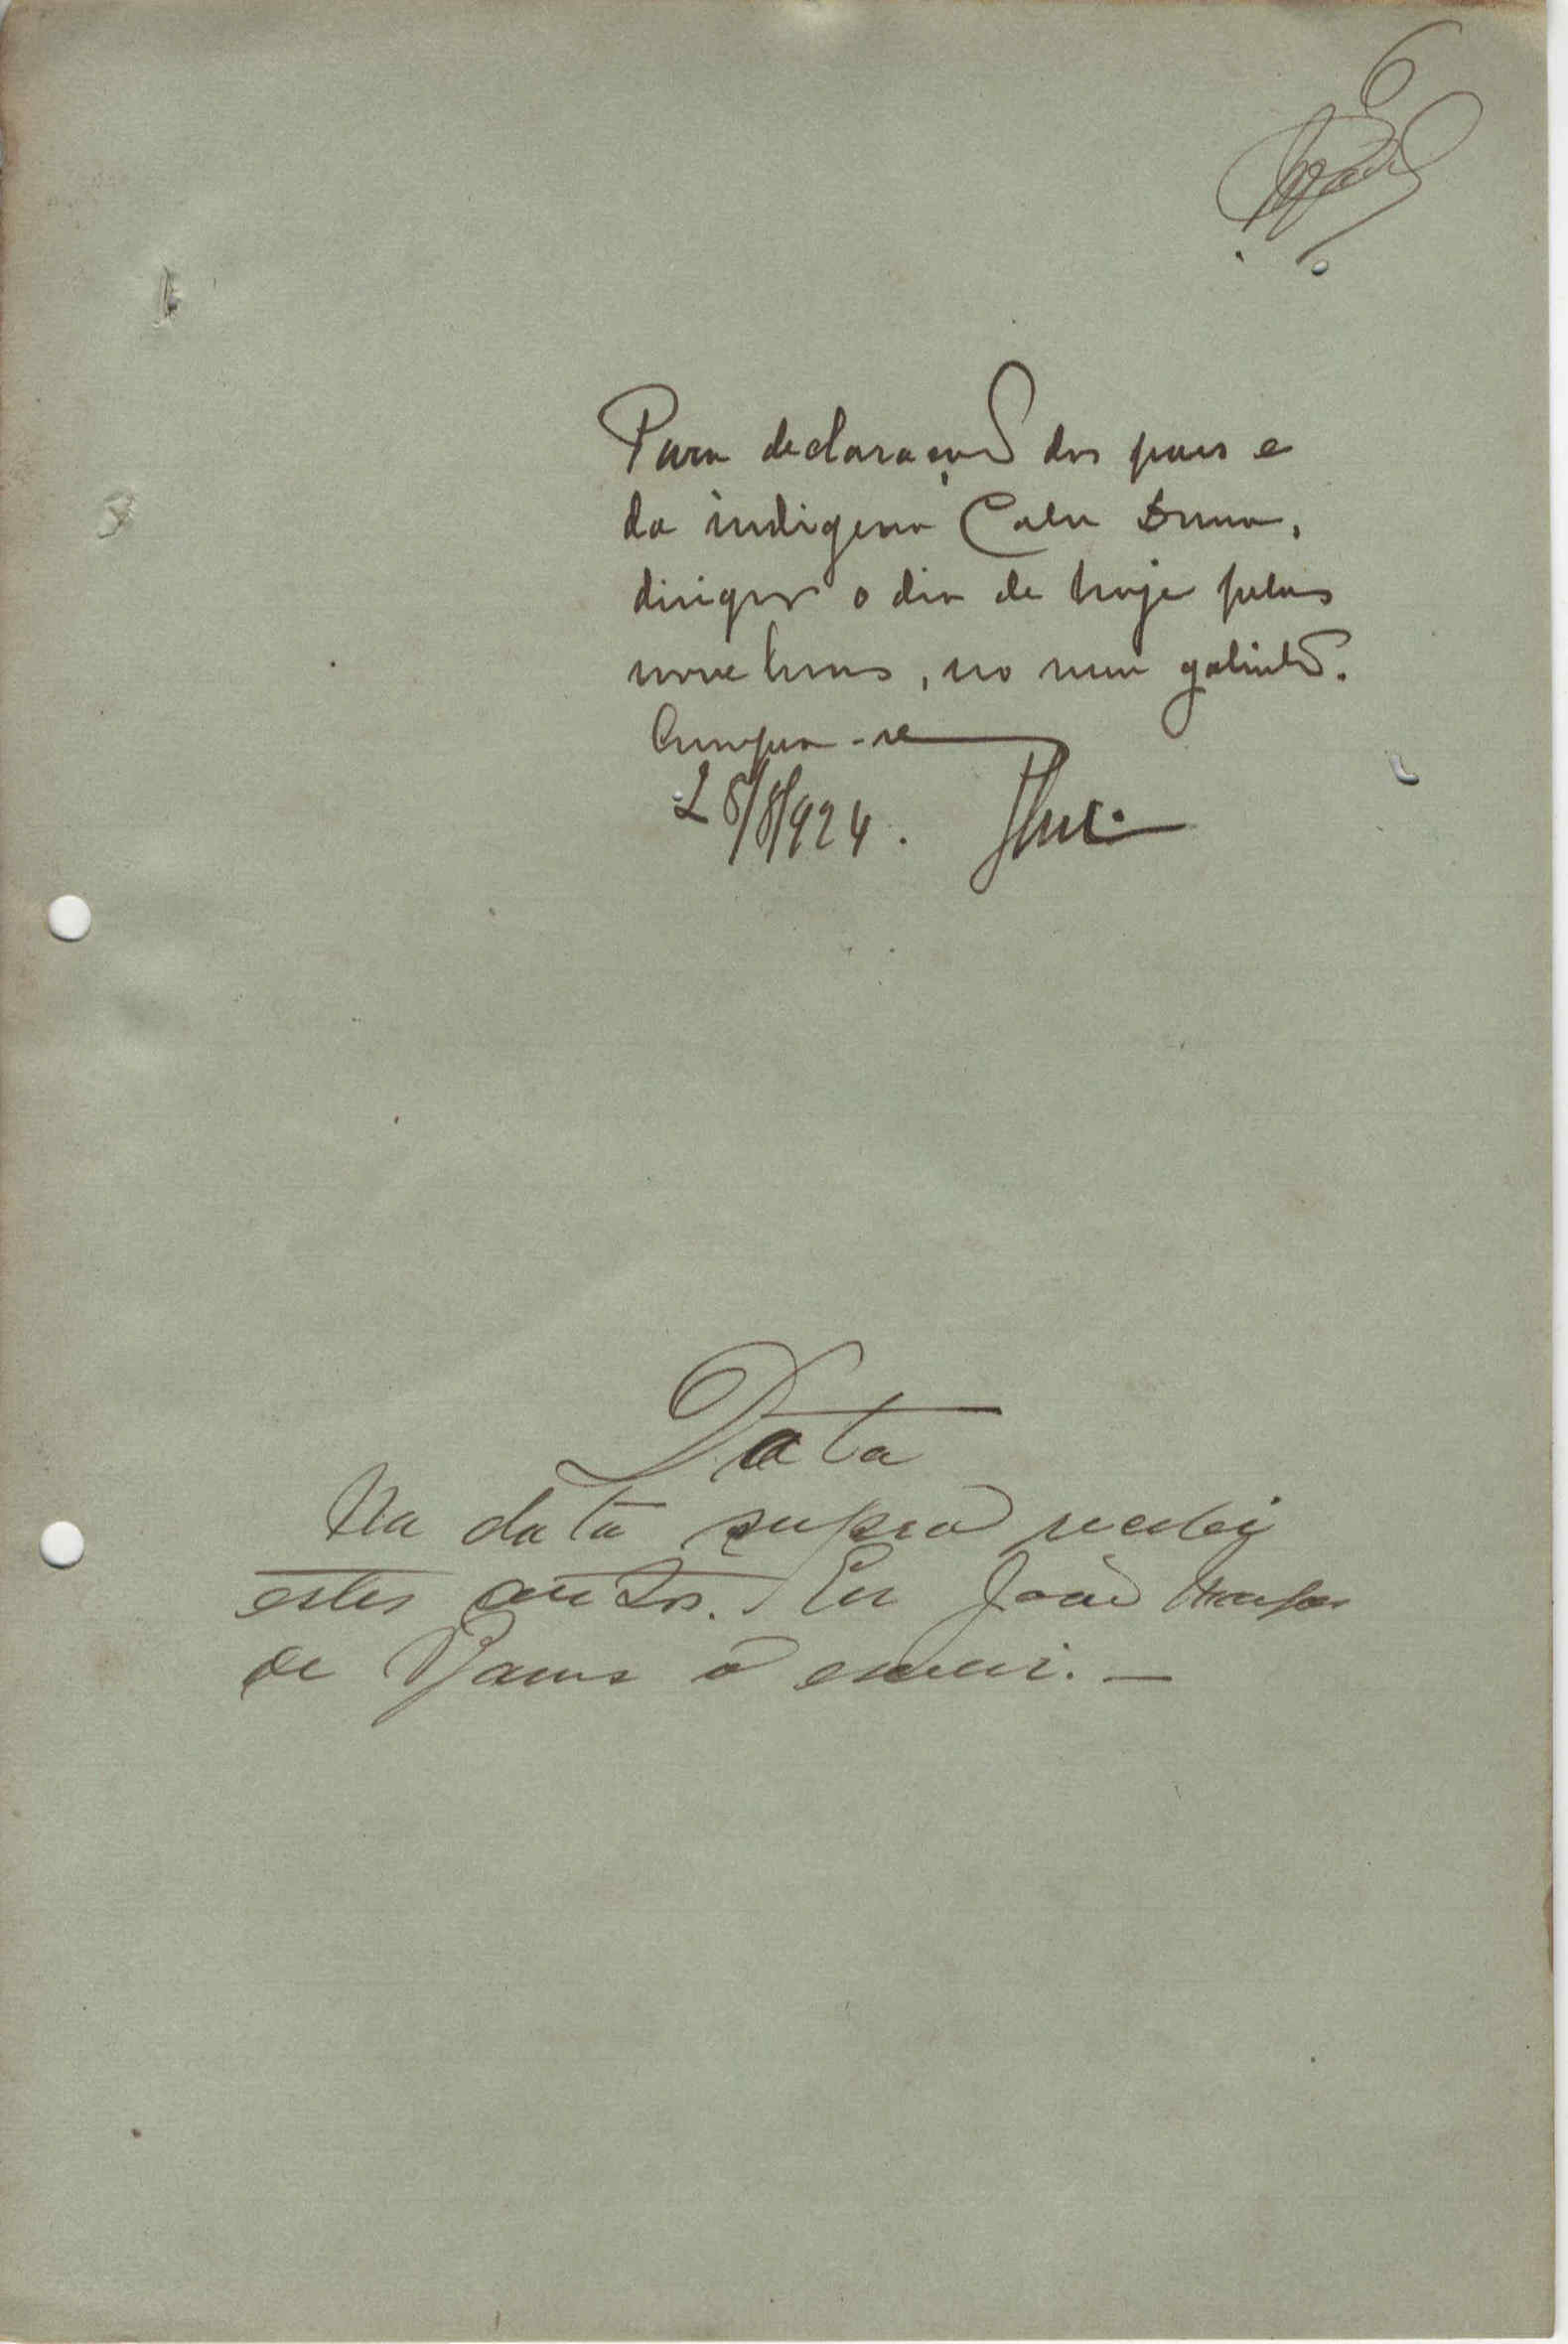 6
Para declaração dos paes e
da indigena
o dia de hoje pelas
nove horas, no meu gabinete.
Cumpra-se
28/8/924.
Data
Na data supra recebi
estes autos. Eu João
de Barros o escrevi. —